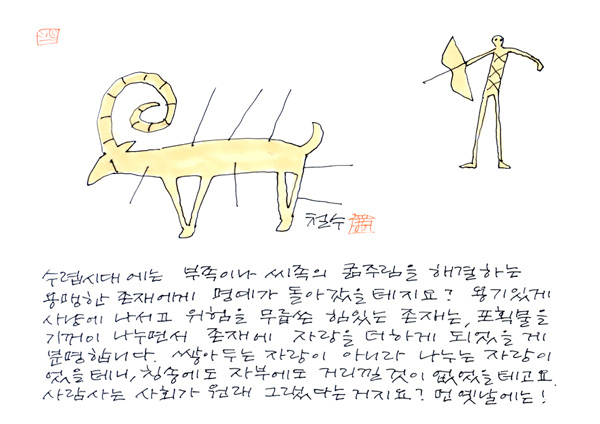 철수
수렵시대에는 부족이나 씨족의 굶주림을 해결하는
용맹한 존재에게 명예가 돌아갔을테지요? 용기있게
사냥에 나서고 위험을 무릅쓴 힘있는 존재는, 포획물을
기꺼이 나누면서 존재에 자랑을 더하게 되었을 게
분명합니다. 쌓아두는 자랑이 아니라 나누는 자랑이
었을테니, 칭송에도 자부에도 거리낄 것이 없었을테고요.
사람사는 사회가 원래 그랬었다는거지요? 먼 옛날에는!